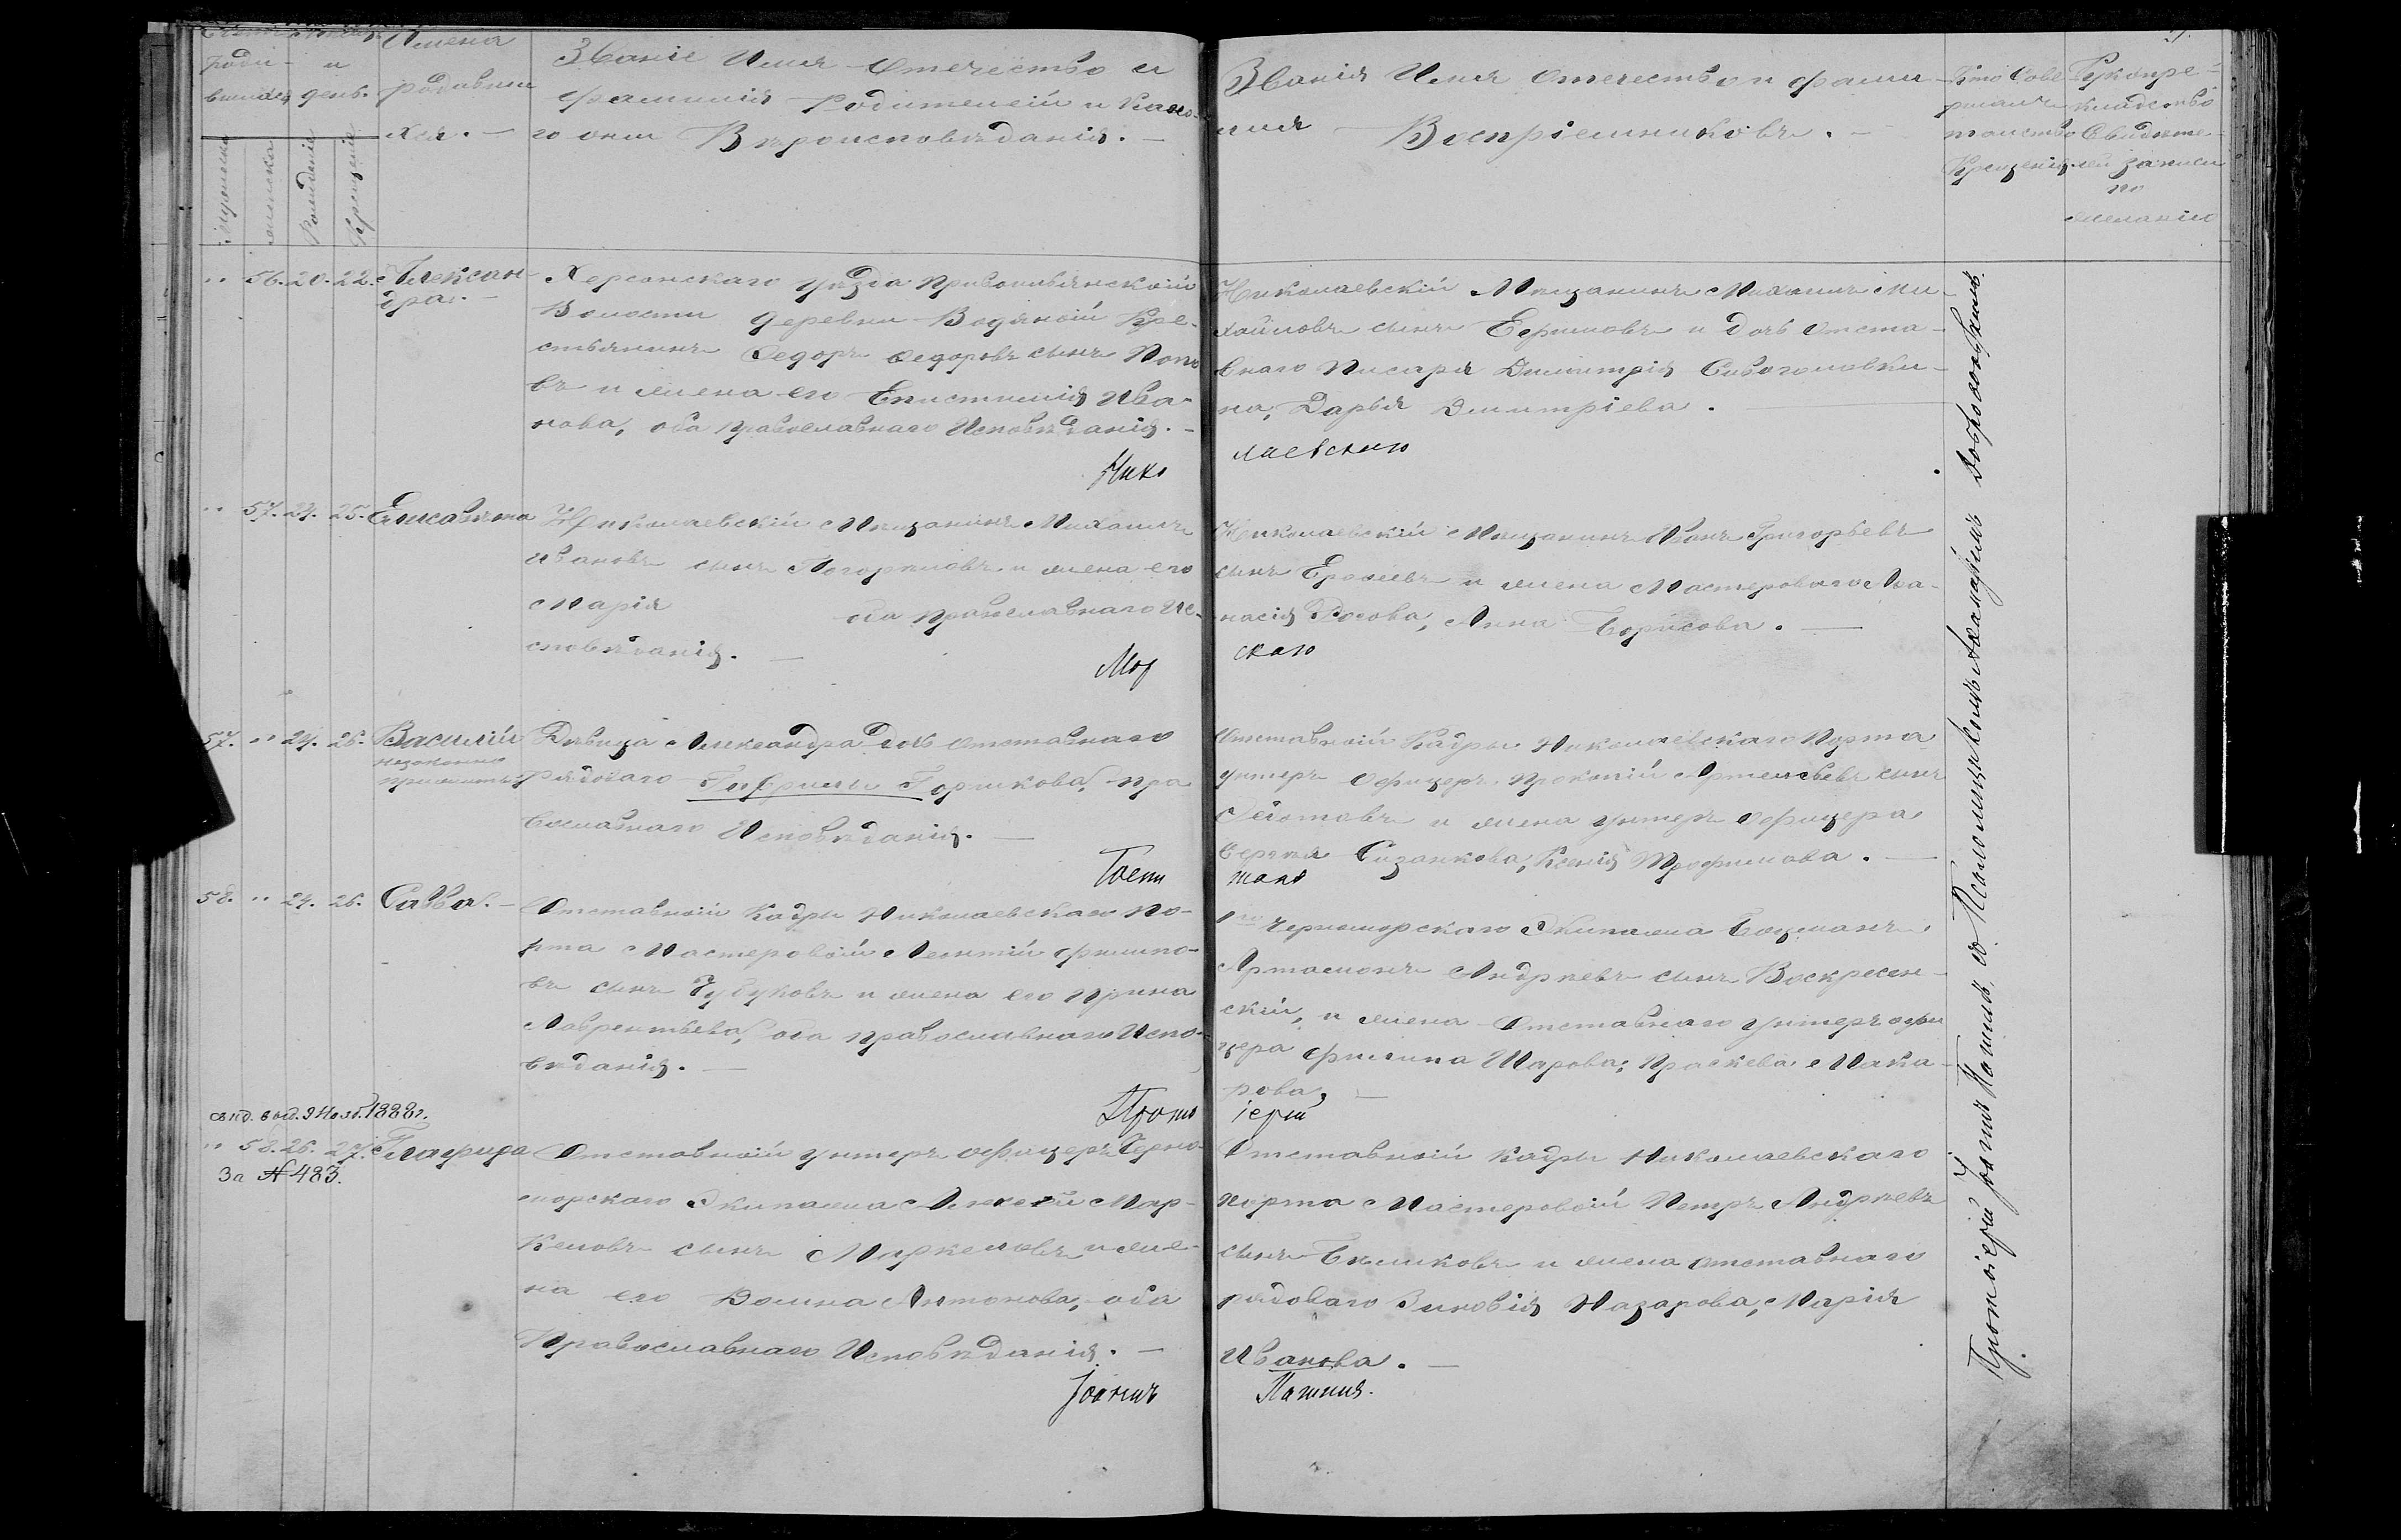 Имена
роди- и
вшихся день. родивши
хся. —
Званіе Имя Отчество и
фамилія Родителей и како-
го они Вѣроисповѣданія. —
Мужеска
женска
Рожденіе
Крещеніе
Званія Имя Отечество и фами-
лія Воспріемниковъ. —
Кто Сове
ршалъ
таинство
Крещенія.
Рукопре-
кладство
Свидѣте-
лей записи
по
желанію
" 56. 20. 22. Алексан-
дра. —
Херсонскаго уѣзда Привольнянской
Волости деревни Водяной Кре-
стьянинъ Федоръ Федоровъ сынъ Попо
въ и жена его Епистимія Ива-
нова, оба православнаго Исповѣданія. —
Нико
Николаевскій Мѣщанинъ Михаилъ Ми-
хайловъ сынъ Ефимовъ и дочь Отста-
внаго Писаря Димитрія Сивоголовки-
на, Дарья Димитріева.
лаевскаго
" 57. 24. 25. Елисавета
Николаевскій Мѣщанинъ Михаилъ
Ивановъ сынъ Погорѣловъ и жена его
Марія оба православнаго Ис-
повѣданія. —
Мор
Николаевскій Мѣщанинъ Иванъ Григорьевъ
сынъ Ерофеевъ и жена Мастероваго Афа-
насія Носова, Анна Борисова. —
скаго
57. " 24. 26. Василій
незаконно
прижитый
Дѣвица Александра дочь отставнаго
рядоваго Гавріила Горшкова, пра
вославнаго Исповѣданія. —
Госпи
Отставной Кадры Николаевскаго Порта
унтеръ офицеръ Прокопій Артемьевъ сынъ
Федотовъ и жена унтеръ офицера
Сергѣя Сизанкова, Ксенія Трофимова. —
таля
58. " 24. 26. Савва. —
Отставной Кадры Николаевскаго По-
рта Мастеровой Леонтій Филипо-
въ сынъ Чубуковъ и жена его Ирина
Лаврентьева, оба православнаго Испо-
вѣданія. —
Прото
1го Черноморскаго Экипажа Боцманъ
Артамонъ Андреевъ сынъ Воскресен-
скій, и жена Отставнаго унтеръ офи
цера Филипа Шарова, Праскева Мака-
рова, —
іерей
свид. выд. 9 Нояб. 1888 г.
" 58. 26. 27. Глафира
За № 483.
Отставной унтеръ офицеръ Черно-
морскаго Экипажа Алексѣй Мар-
келовъ сынъ Маркеловъ и же-
на его Домна Антонова, оба
Православнаго Исповѣданія. —
Іоаннъ
Отставной Кадры Николаевскаго
порта Мастеровой Петръ Андреевъ
сынъ Бѣликовъ и жена отставнаго
рядоваго Зиновія Назарова, Марія
Иванова. —
Протоіерей Іоаннъ съ Псаломщикомъ Добровольскимъ.